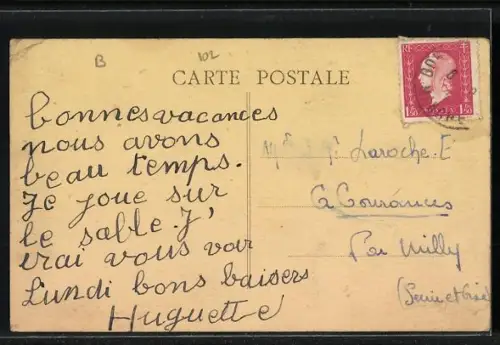 B
102
CARTE POSTALE
RF
1F50 1F50
bonnes vacances
nous avons
beau temps.
Je joue sur
le sable. J'
irai vous voir
Lundi bons baisers
Huguette
Laroche. E
à Courances
Par Milly
(Seine et Oise)